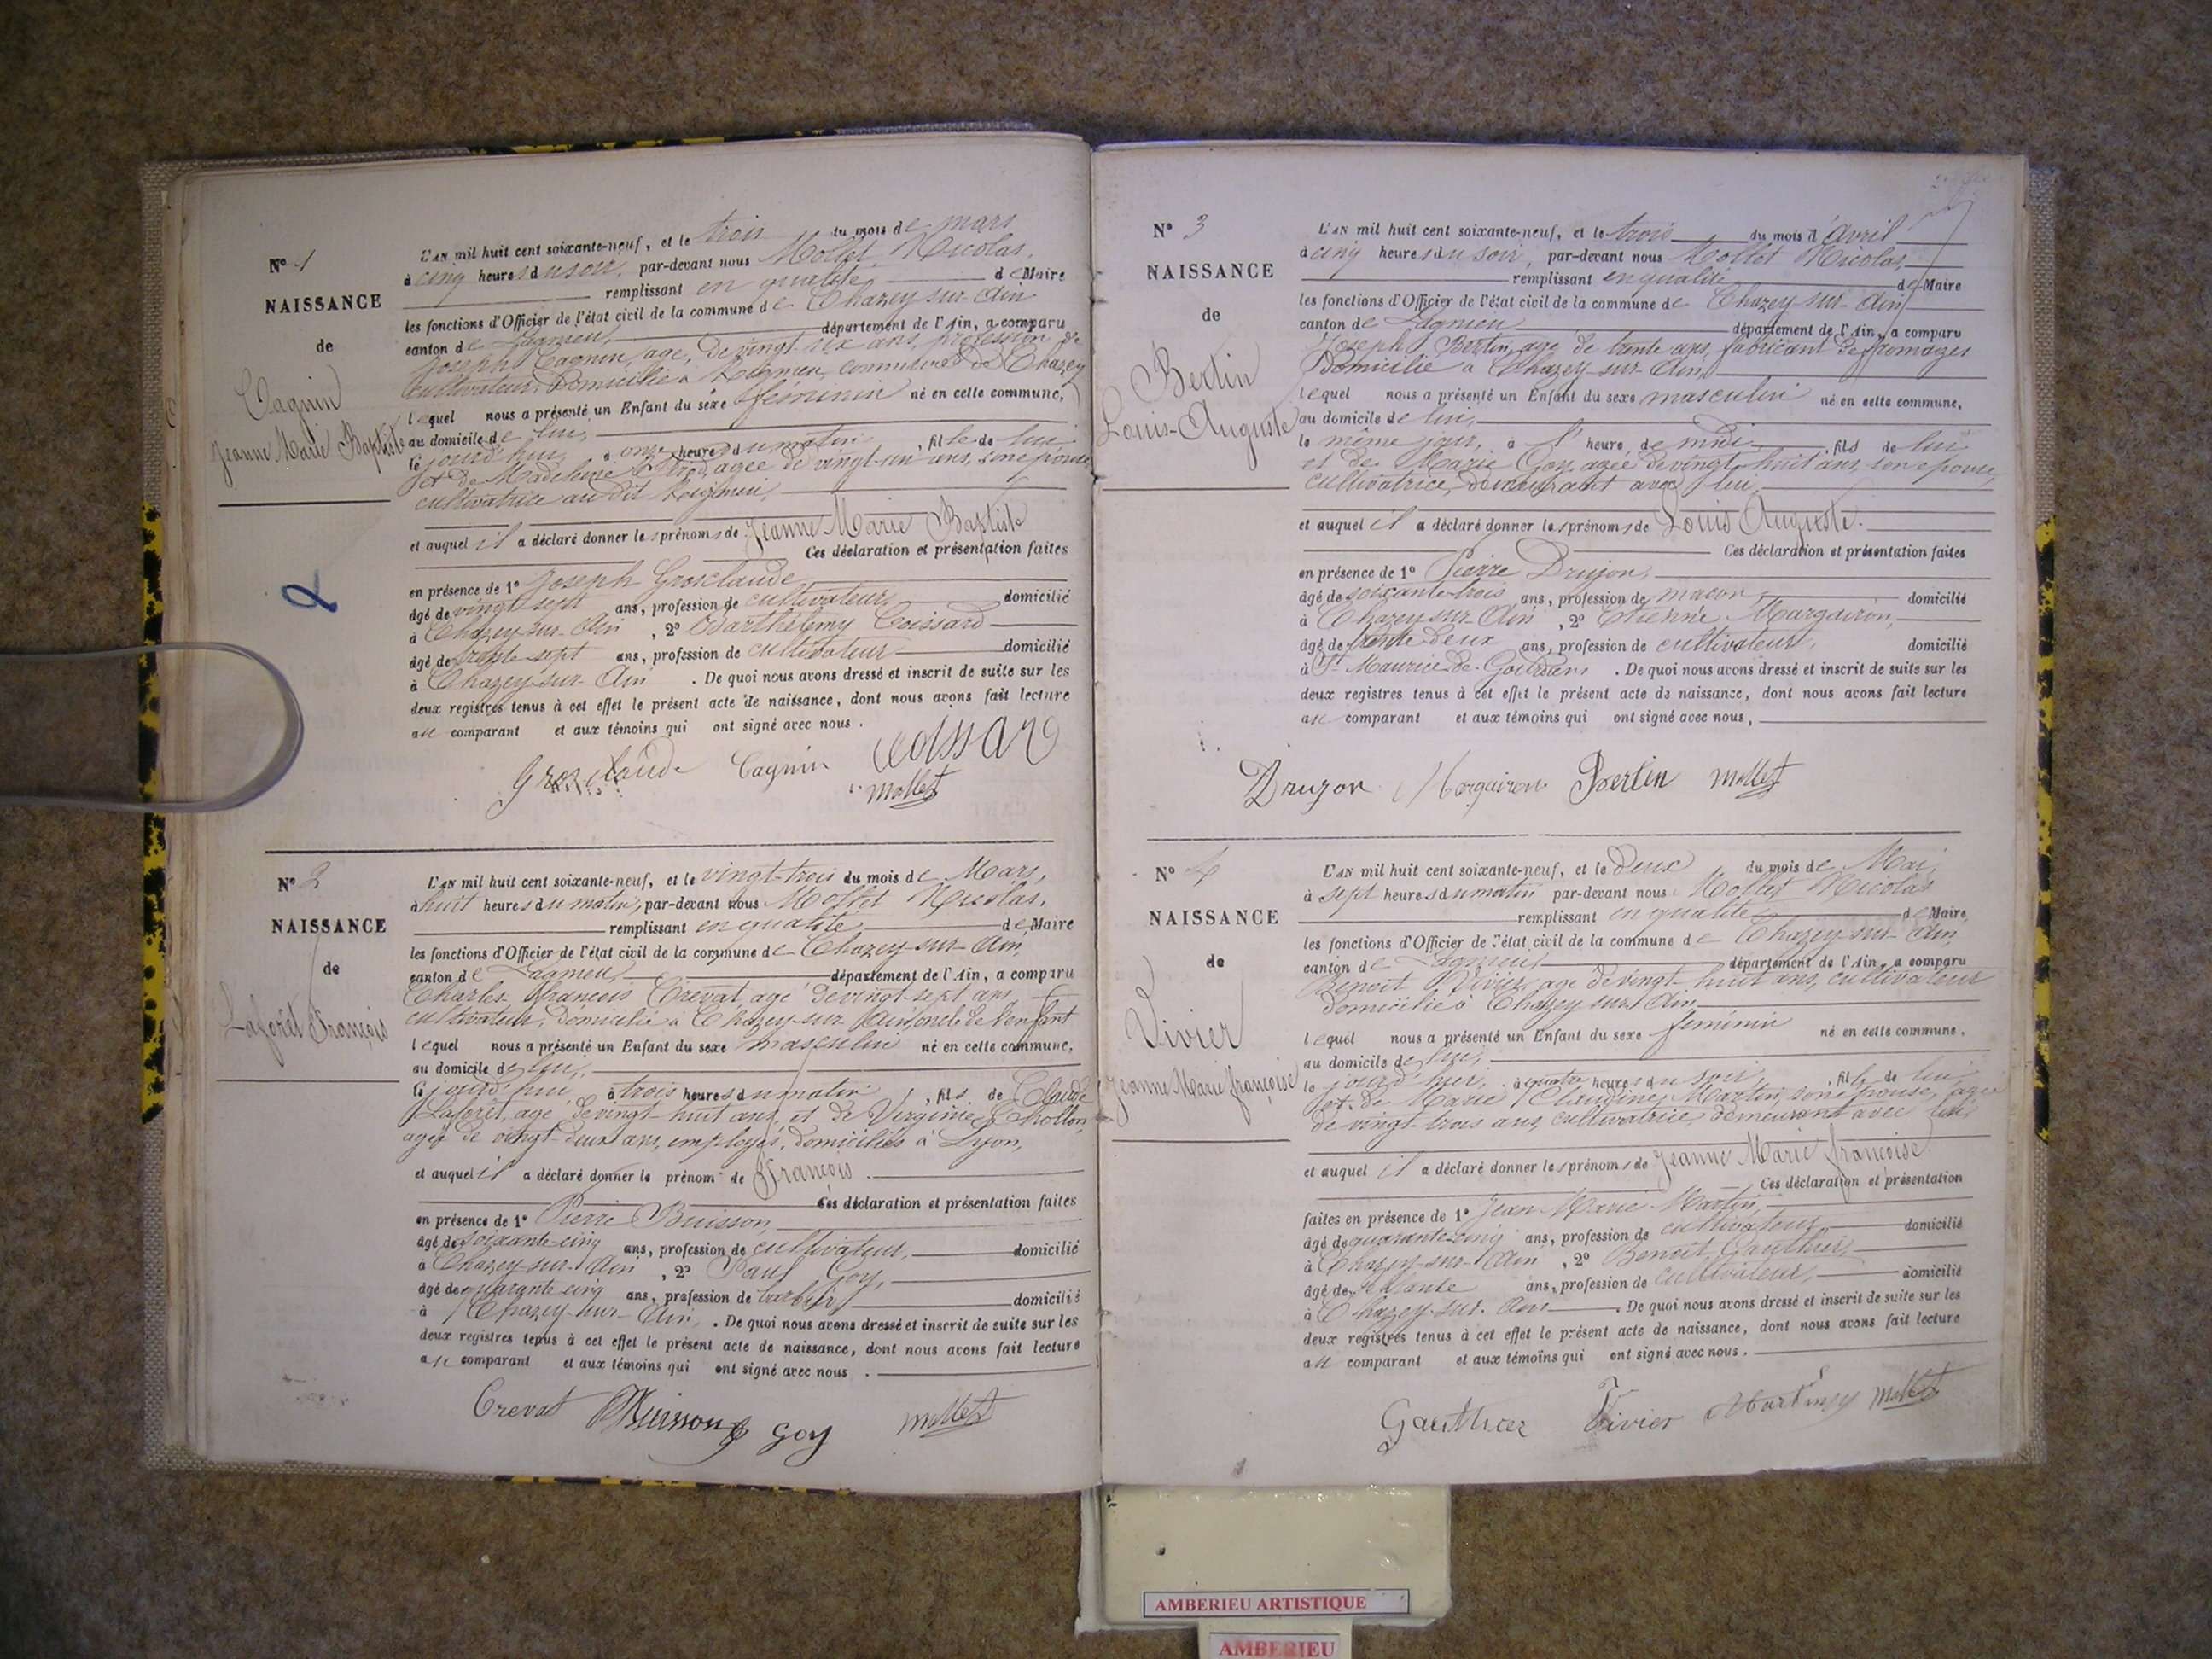 N° 1
NAISSANCE
de
Cagnin
Jeanne Marie Baptiste
L'AN mil huit cent soixante-neuf, et le trois du mois de mars
à cinq heures du soir, par-devant nous Mollet Nicolas,
remplissant en qualité de Maire
les fonctions d'Officier de l'état civil de la commune de Chazey-sur-Ain
canton de Lagnieu, département de l'Ain, a comparu
Joseph Cagnin, âgé de vingt-six ans, profession de
cultivateur, domicilié à commune de Chazey
lequel nous a présenté un Enfant du sexe féminin né en cette commune,
au domicile de lui,
le jourd'hui, à onze heures du matin, fille de lui
et de Madeleine agée de vingt-un ans, son épouse,
cultivatrice au dit
et auquel il a déclaré donner les prénoms de Jeanne Marie Baptiste
Ces déclaration et présentation faites
en présence de 1° Joseph Grosclaude,
âgé de vingt-sept ans, profession de cultivateur, domicilié
à Chazey-sur-Ain, 2° Barthélemy Coissard
âgé de trente-sept ans, profession de cultivateur domicilié
à Chazey-sur-Ain. De quoi nous avons dressé et inscrit de suite sur les
deux registres tenus à cet effet le présent acte de naissance, dont nous avons fait lecture
au comparant et aux témoins qui ont signé avec nous.
Grosclaude Cagnin Coissard
Mollet
N° 2
NAISSANCE
de
Laforêt François
L'AN mil huit cent soixante-neuf, et le vingt-trois du mois de Mars,
à huit heures du matin, par-devant nous Mollet Nicolas,
remplissant en qualité de Maire
les fonctions d'Officier de l'état civil de la commune de Chazey-sur-Ain,
canton de Lagnieu, département de l'Ain, a comparu
Charles François Crevat, agé de vingt-sept ans
cultivateur, domicilié à Chazey-sur-Ain, oncle de l'enfant
lequel nous a présenté un Enfant du sexe masculin né en cette commune,
au domicile de lui,
le jourd'hui, à trois heures du matin, fils de Claude
Laforêt, agé de vingt-huit ans, et de Virginie Chollon,
agée de vingt-deux ans, employés, domiciliés à Lyon,
et auquel il a déclaré donner le prénom de François
Ces déclaration et présentation faites
en présence de 1° Pierre Buisson,
âgé de soixante-cinq ans, profession de cultivateur, domicilié
à Chazey-sur-Ain, 2° Paul Goy,
âgé de quarante-cinq ans, profession de domicilié
à Chazey-sur-Ain. De quoi nous avons dressé et inscrit de suite sur les
deux registres tenus à cet effet le présent acte de naissance, dont nous avons fait lecture
au comparant et aux témoins qui ont signé avec nous.
Crevat Buisson Goy Mollet
N° 3
NAISSANCE
de
Bertin
Louis-Auguste
L'AN mil huit cent soixante-neuf, et le trois du mois d'Avril
à cinq heures du soir, par-devant nous Mollet Nicolas,
remplissant en qualité de Maire
les fonctions d'Officier de l'état civil de la commune de Chazey-sur-Ain,
canton de Lagnieu département de l'Ain, a comparu
Joseph Bertin, agé de trente ans, fabricant de fromages
Domicilié à Chazey-sur-Ain,
lequel nous a présenté un Enfant du sexe masculin né en cette commune,
au domicile de lui,
le même jour, à l'heure de midi, fils de lui
et de Marie Goy, agée de vingt-huit ans, son épouse,
cultivatrice, demeurant avec lui,
et auquel il a déclaré donner les prénoms de Louis Auguste.
Ces déclaration et présentation faites
en présence de 1° Pierre Drujon,
âgé de soixante-trois ans, profession de maçon, domicilié
à Chazey-sur-Ain, 2° Etienne Margairon,
âgé de trente-deux ans, profession de cultivateur, domicilié
à St Maurice-de-Gourdans. De quoi nous avons dressé et inscrit de suite sur les
deux registres tenus à cet effet le présent acte de naissance, dont nous avons fait lecture
au comparant et aux témoins qui ont signé avec nous,
Drujon Margairon Bertin Mollet
N° 4
NAISSANCE
de
Vivier
Jeanne Marie françoise
L'AN mil huit cent soixante-neuf, et le Deux du mois de Mai,
à sept heures du matin par-devant nous Mollet Nicolas
remplissant en qualité de Maire
les fonctions d'Officier de l'état civil de la commune de Chazey-sur-Ain,
canton de Lagnieu, département de l'Ain, a comparu
Benoit Vivier, agé de vingt-huit ans, cultivateur
domicilié à Chazey sur Ain
lequel nous a présenté un Enfant du sexe féminin né en cette commune,
au domicile de lui,
le jourd'hier, à quatre heures du soir, fille de lui
et de Marie Claudine Martin, son épouse, agée
de vingt-trois ans, cultivatrice, demeurant avec lui
et auquel il a déclaré donner les prénoms de Jeanne Marie françoise
Ces déclaration et présentation
faites en présence de 1° Jean Marie Martin,
âgé de quarante-cinq ans, profession de cultivateur, domicilié
à Chazey-sur-Ain, 2° Benoit Gauthier,
âgé de ans, profession de cultivateur, domicilié
à Chazey-sur-Ain. De quoi nous avons dressé et inscrit de suite sur les
deux registres tenus à cet effet le présent acte de naissance, dont nous avons fait lecture
au comparant et aux témoins qui ont signé avec nous.
Gauthier Vivier Martin Mollet
AMBERIEU ARTISTIQUE
AMBERIEU